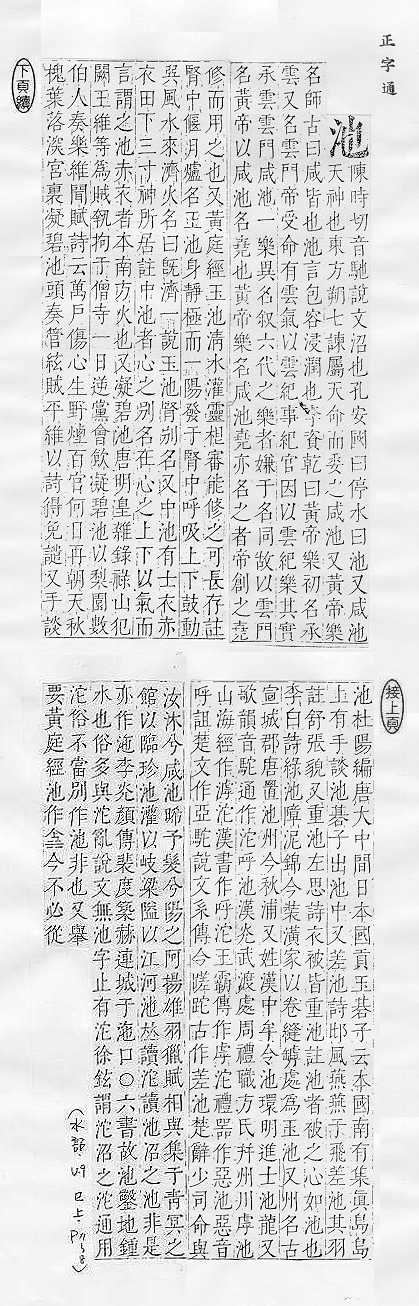 正字通
池 陳時切音馳說文沼也孔安國曰停水曰池又咸池
天神也東方朔七諫屬天命而委之咸池又黃帝樂
名師古曰咸皆也池言包容浸潤也李資乾曰黃帝樂初名承
雲又名雲門帝受命有雲氣以雲紀事紀官因以雲紀樂其實
承雲雲門咸池一樂異名叙六代之樂者嫌于名同故以雲門
名黃帝以咸池名堯也黃帝樂名咸池堯亦名之者帝創之堯
修而用之也又黃庭經玉池清水灌靈根審能修之可長存註
腎中偃月爐名玉池身靜極而一陽發于腎中呼吸上下鼓動
巽風水來濟火名曰旣濟一說玉池腎别名又中池有士衣赤
衣田下三寸神所居註中池者心之别名在心之上下以氣而
言謂之池赤衣者本南方火也又凝碧池唐明皇雜錄祿山犯
闕王維等為賊執拘于僧寺一日逆黨會飲凝碧池以梨園數
伯人奏樂維聞賦詩云萬戶傷心生野煙百官何日再朝天秋
槐葉落深宮裏凝碧池頭奏管絃賊平維以詩得免譴又手談
下頁續
接上頁
池杜陽編唐大中間日本國貢玉碁子云本國南有集眞島島
上有手談池碁子出池中又差池詩邶風燕燕于飛差池其羽
註舒張貌又重池左思詩衣被皆重池註池者被之心如池也
李白詩綠池障泥錦今裝潢家以卷縫罅處為玉池又州名古
宣城郡唐置池州今秋浦又姓漢中牟令池環明進士池龍又
歌韻音駝通作沱呼池漢炎武渡處周禮職方氏幷州川虖池
山海經作滹沱漢書作呼沱王霸傳作虖沱禮器作惡池惡音
呼詛楚文作亞駝說文系傳今嗟跎古作差池楚辭少司命與
汝沐兮咸池晞予髮兮陽之阿揚雄羽獵賦相與集于靑冥之
館以臨珍池灌以岐梁隘以江河池叶讀沱讀池沼之池非是
亦作沲李炎顏傳裴度築赫連城于沲口○六書故池鑿地鍾
水也俗多與沱亂說文無池字止有沱徐鉉謂沱沼之沱通用
沱俗不當別作池非也又舉
要黃庭經池作今不必從
(水部